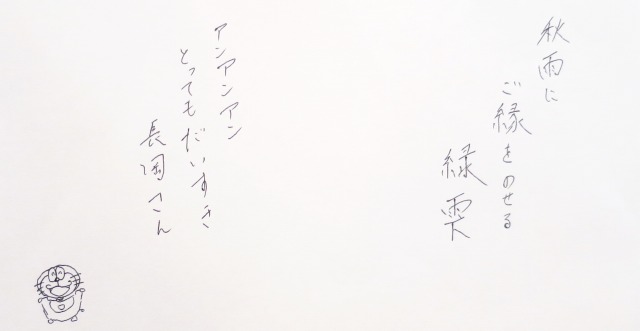 秋雨に
ご縁をのせる
緑雫
アンアンアン
とってもだいすき
長岡さん